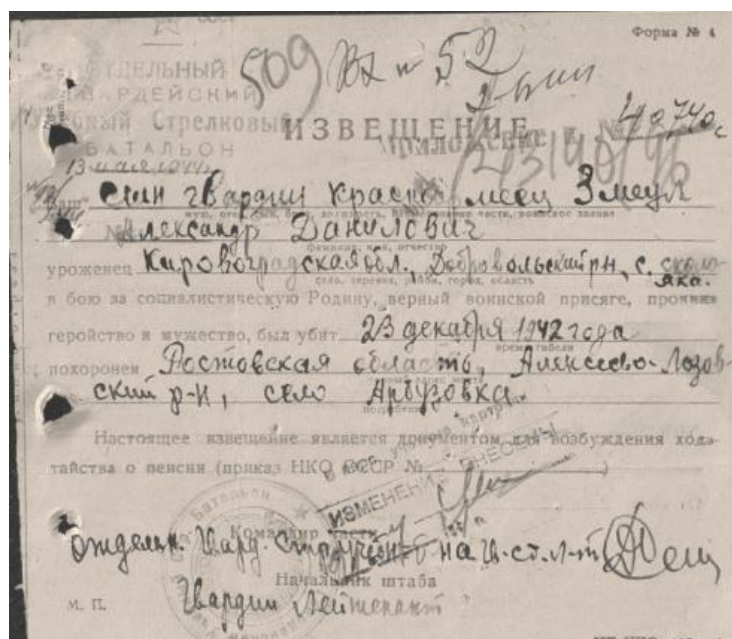 Форма № 4
509 Вх № 52
ОТДЕЛЬНЫЙ
ГВАРДЕЙСКИЙ
Учебный Стрелковый
БАТАЛЬОН
ИЗВЕЩЕНИЕ
Приложение к №
40740с
13 мая 1944
Ваш сын гвардии красноармеец Змеул
муж, сын, брат, должность, наименование части, воинское звание
Александр Данилович
фамилия, имя, отчество
уроженец Кировоградская обл., Добровольский рн, с.
село, деревня, район, город, область
в бою за социалистическую Родину, верный воинской присяге, проявив
геройство и мужество, был убит 23 декабря 1942 года
время гибели
похоронен Ростовская область, Алексеево-Лозов-
ский р-н, село Арбузовка.
погребения
Настоящее извещение является документом для возбуждения хода-
тайства о пенсии (приказ НКО СССР № )
В учетную карту
ИЗМЕНЕНИЯ ВНЕСЕНЫ
Батальон
Командир части
отдельн. Гвард. Стр. гв. ст. л-т
Начальник штаба
М. П. Гвардии Лейтенант